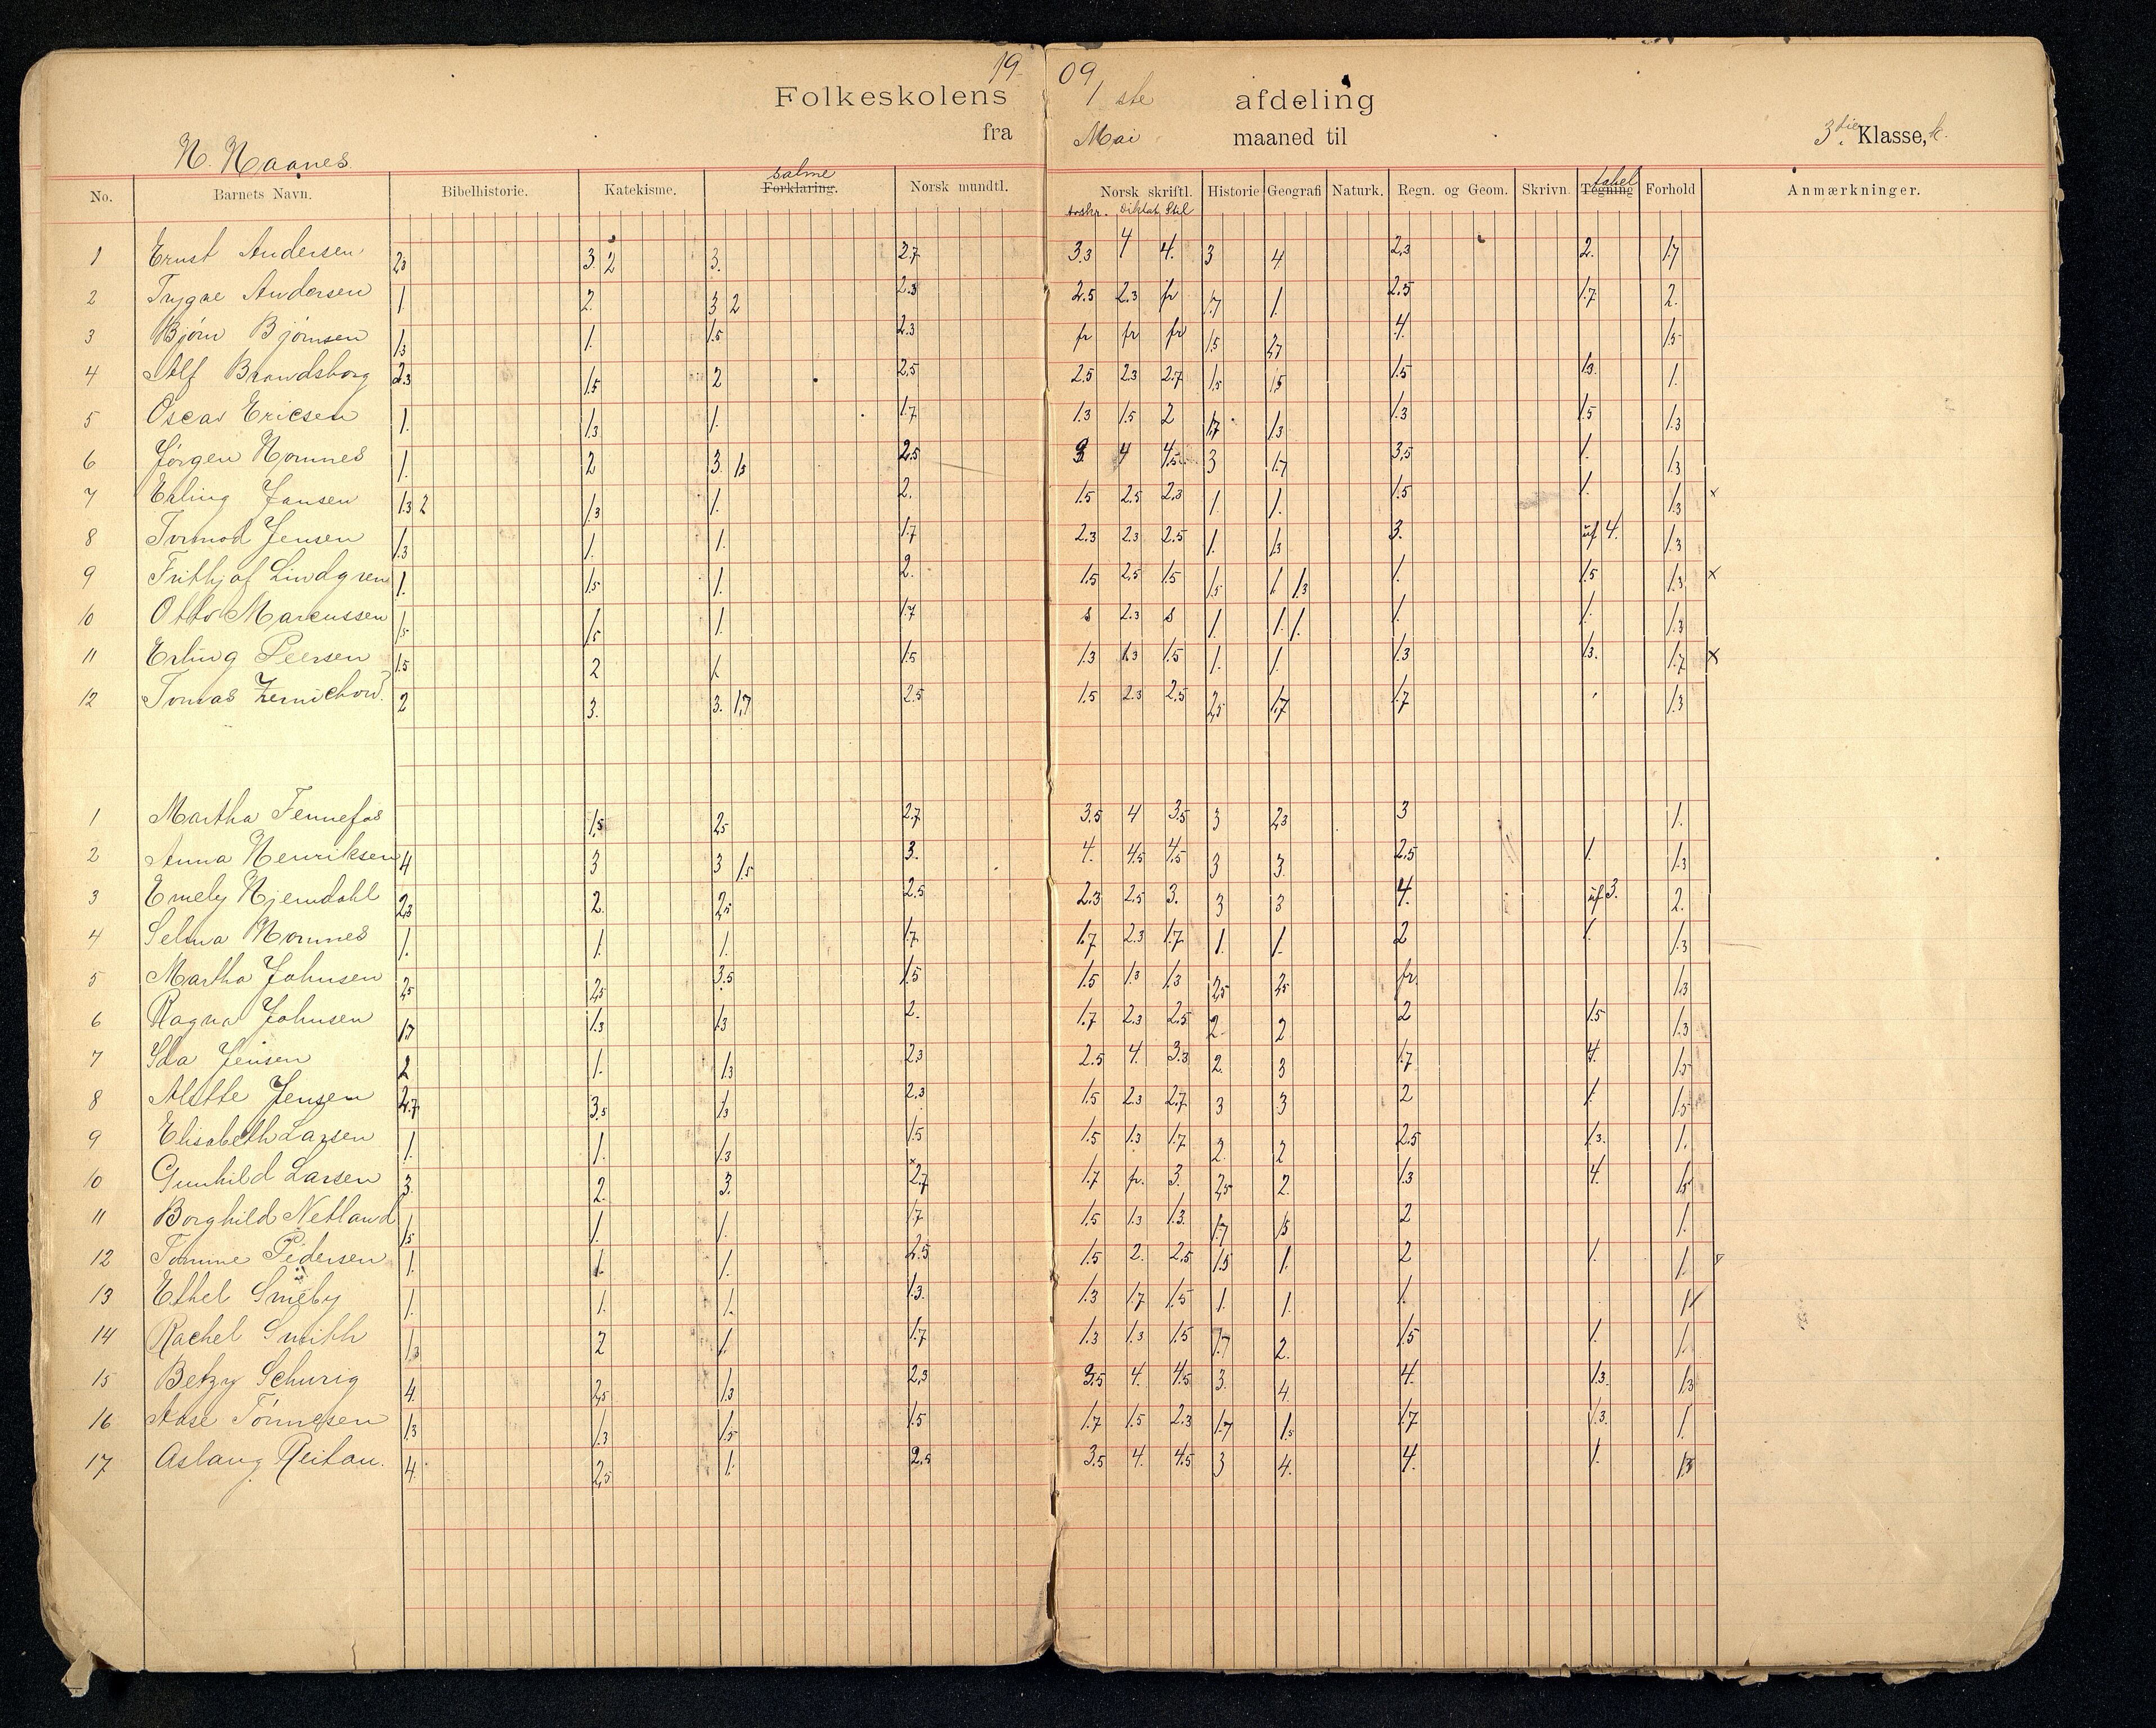 19 09
Folkeskolens 1 ste afdeling
fra Mai maaned til 3die Klasse, k.
N. Naanes
No. Barnets Navn. Bibelhistorie. Katekisme. Forklaring. salme Norsk mundtl. Norsk skriftl. Historie Geografi Naturk. Regn. og Geom. Skrivn. Tegning tabel Forhold Anmærkninger.
avskr. diktat Stil
1 Ernst Andersen 2.3 3. 2 3. 2.7 3.3 4 4. 3 4 2.3 2. 1.7
2 Trygve Andersen 1. 2. 3 2 2.3 2.5 2.3 fr 1.7 1. 2.5 1.7 2.
3 Bjørn Bjørnsen 1.3 1. 1.5 2.3 fr fr fr 1.5 2.7 4. 1.5
4 Alf Brandsborg 2.3 1.5 2 2.5 2.5 2.3 2.7 1.5 1.5 1.5 1.3. 1.
5 Oscar Ericsen 1. 1.3 1. 1.7 1.3 1.5 2 1.7 1.3 1.3 1.5 1.3
6 Jørgen Homnes 1. 2 3. 1.5 2.5 3. 4 4.5 3 1.7 3.5 1. 1.3
7 Erling Jansen 1.3 2 1.3 1. 2. 1.5 2.5 2.3 1. 1. 1.5 1. 1.3 x
8 Tormod Jensen 1.3 1. 1. 1.7 2.3 2.3 2.5 1. 1.3 3. uf 4. 1.3
9 Frithjof Lindgren 1. 1.5 1. 2. 1.5 2.5 1.5 1.5 1. 1.3 1. 1.5 1.3 x
10 Otto Marcussen 1.5 1.5 1. 1.7 s 2.3 s 1. 1. 1. 1. 1. 1.3
11 Erling Peersen 1.5 2 1. 1.5 1.3 1.3 1.5 1. 1. 1.3 1.3. 1.7 x
12 Tomas Zernichow 2 3. 3. 1.7 2.5 1.5 2.3 2.5 2.5 1.7 1.7 1.3
1 Martha Fennefos 1.5 2.5 2.7 3.5 4 3.5 3 2.3 3 1.
2 Anna Henriksen 4 3 3 1.5 3. 4. 4.5 4.5 3 3. 2.5 1. 1.3
3 Emely Hjemdahl 2.3 2. 2.5 2.5 2.3 2.5 3. 3 3 4. uf 3. 2.
4 Selma Homnes 1. 1. 1. 1.7 1.7 2.3 1.7 1. 1. 2 1. 1.3
5 Martha Johnsen 2.5 2.5 3.5 1.5 1.5 1.3 1.3 2.5 2.5 fr. 1.3
6 Ragna Johnsen 1.7 1.3 1.3 2. 1.7 2.3 2.5 2. 2 2 1.5 1.3
7 Ida Jensen 2 1. 1.3 2.3 2.5 4. 3.3 2. 3 1.7 4. 1.5
8 Alette Jensen 2.7 3.5 1.3 2.3 1.5 2.3 2.7 3 3 2 1. 1.5
9 Elisabeth Larsen 1. 1. 1.3 1.5 1.5 1.3 1.7 2. 2 2.5 1.3. 1.
10 Gunhild Larsen 3. 2. 3. 2.7 1.7 fr. 3. 2.5 2. 1.3 4. 1.5
11 Borghild Netland 1.5 1. 1. 1.7 1.5 1.3 1.3. 1.7 1.5 2 1.
12 Tomine Pedersen 1. 1. 1. 2.5 1.5 2. 2.5 1.5 1. 2 1. 1.
13 Ethel Smeby 1. 1. 1. 1.3. 1.3 1.7 1.5 1. 1. 1. 1
14 Rachel Smith 1.3 2 1. 1.7 1.3 1.3 1.5 1.7 2. 1.5 1. 1.
15 Betzy Schurig 4. 2.5 1.3 2.3 3.5 4. 4.5 3. 4. 4. 1.3. 1.3
16 Aase Tönnesen 1.3 1.3 1.5 1.5 1.7 1.5 2.3 1.7 1.5 1.7 1.3. 1.
17 Aslaug Reitan. 4. 2.5 1. 2.5 3.5 4. 4.5 3 4. 4. 1. 1.3